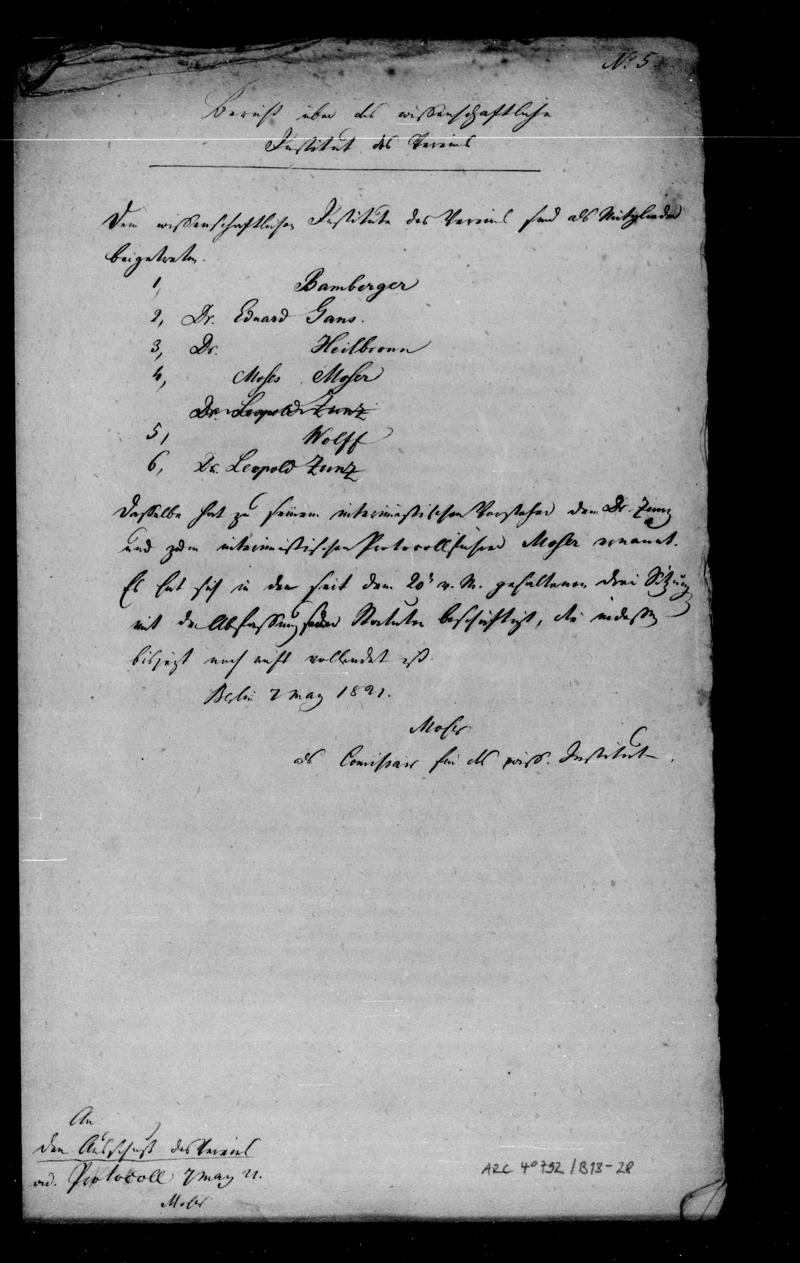 No 5
Bericht über das wissenschaftliche
Institut des Vereins
Dem wissenschaftlichen Institute des Vereins sind als Mitglieder
beigetreten.
1, Bamberger
2, Dr. Eduard Gans.
3, Dr. Heilbronn
4, Moses Moser
Dr. Leopold Zunz
5, Wolff
6, Dr. Leopold Zunz
Dasselbe hat zu seinem interimistischen Vorsteher den Dr. Zunz
und zum interimistischen Protocollführer Moser ernannt.
Es hat sich in den seit dem 20t v. M. gehaltenen drei Sitzung
mit der Abfassung seiner Statuten beschäftigt, die indessen
bis jezt noch nicht vollendet ist.
Berlin 7 May 1821.
Moser
als Comissair für das wiss. Institut.
An
den Ausschuß des Vereins
ad. Protocoll 7 May 21.
Moser
ARC 4° 792 / B13-28